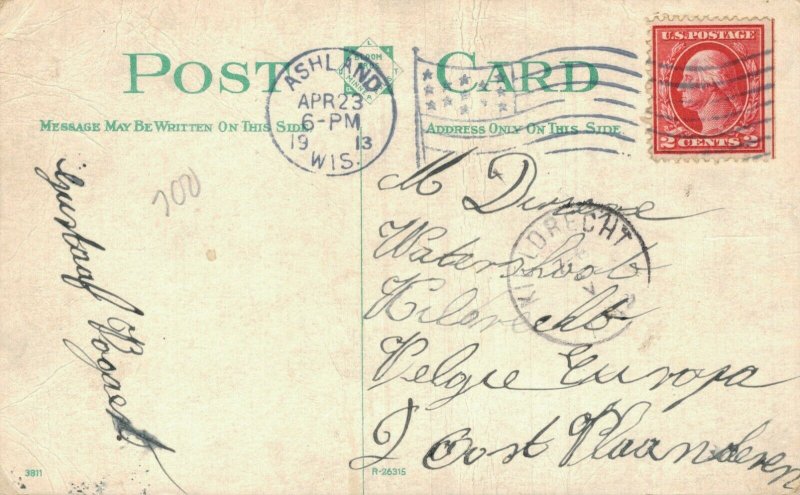 POST CARD
MESSAGE MAY BE WRITTEN ON THIS SIDE
ADDRESS ONLY ON THIS SIDE
ASHLAND
APR 23
6-PM
1913
WIS.
U.S. POSTAGE
2 CENTS 2
700
Gustaaf Bogaert
M
KILDRECHT
Watershoot
Kildrecht
Velgie Europa
Oost Vlaanderen
3811
R-26315